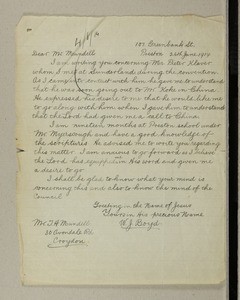 107 Brunbank St.
Preston 23rd June, 1914
Dear Mr. Mundell
I am writing you concerning Mr. Peter Klaver
whom I met at Sunderland during the convention
As I came into contact with him he gave me to understand
that he was soon going out to Mr. Kok in China
He expressed his desire to me that he would like me
to go along with him when I gave him to understand
that the Lord had given me a call to China.
I am nineteen months at Preston school under
Mr. Myerscough and have a good knowledge of
the scriptures He advised me to write you regarding
this matter. I am anxious to go forward as I believe
the Lord has equipped me His word and given me
a desire to go
I shall be glad to know what your mind is
concerning this and also to know the mind of the
Council
Greeting in the Name of Jesus
Yours in His precious Name
W. J. Boyd.
Mr. T. H. Mundell
30 Avondale Rd.
Croydon.